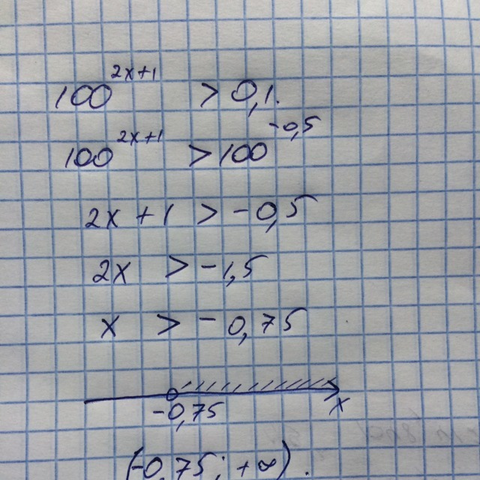 100^(2x+1) > 0,1.
100^(2x+1) > 100^(-0,5)
2x + 1 > -0,5
2x > -1,5
x > -0,75
-0,75 x
(-0,75; +∞).